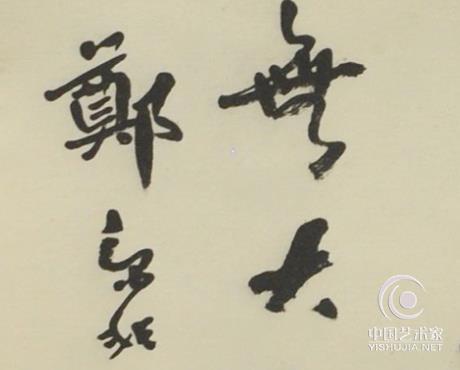 無大
鄭
中国艺术家
YISHUJIA.NET